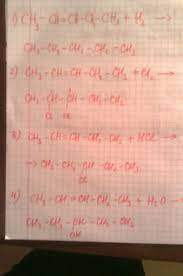 1) CH₃-CH=CH-CH₂-CH₃ + H₂ →
CH₃-CH₂-CH₂-CH₂-CH₃
2) CH₃-CH=CH-CH₂-CH₃ + Cl₂ →
CH₃-CH-CH-CH₂-CH₃
Cl Cl
3) CH₃-CH=CH-CH₂-CH₃ + HCl →
→ CH₃-CH₂-CH-CH₂-CH₃
Cl
4) CH₃-CH=CH-CH₂-CH₃ + H₂O →
CH₃-CH₂-CH-CH₂-CH₃
OH